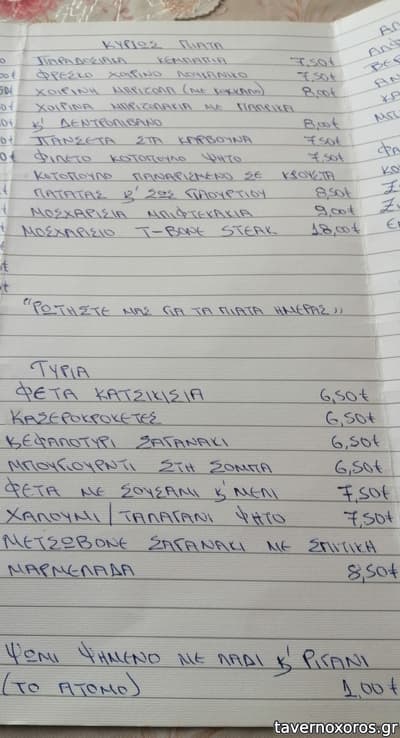 ΚΥΡΙΩΣ ΠΙΑΤΑ
ΠΑΡΑΔΟΣΙΑΚΑ ΚΕΜΠΑΠΙΑ 7,50€
ΦΡΕΣΚΟ ΧΟΙΡΙΝΟ ΛΟΥΚΑΝΙΚΟ 7,50€
ΧΟΙΡΙΝΗ ΜΠΡΙΖΟΛΑ (ΜΕ ΚΟΚΚΑΛΟ) 8,00€
ΧΟΙΡΙΝΑ ΜΠΡΙΖΟΛΑΚΙΑ ΜΕ ΠΑΠΡΙΚΑ
κ' ΔΕΝΤΡΟΛΙΒΑΝΟ 8,00€
ΠΑΝΣΕΤΑ ΣΤΑ ΚΑΡΒΟΥΝΑ 7,50€
ΦΙΛΕΤΟ ΚΟΤΟΠΟΥΛΟ ΨΗΤΟ 7,50€
ΚΟΤΟΠΟΥΛΟ ΠΑΝΑΡΙΣΜΕΝΟ ΣΕ ΚΡΟΥΣΤΑ
ΠΑΤΑΤΑΣ κ' ΣΩΣ ΓΙΑΟΥΡΤΙΟΥ 8,50€
ΜΟΣΧΑΡΙΣΙΑ ΜΠΙΦΤΕΚΑΚΙΑ 9,00€
ΜΟΣΧΑΡΙΣΙΟ T-BONE STEAK 18,00€
"ΡΩΤΗΣΤΕ ΜΑΣ ΓΙΑ ΤΑ ΠΙΑΤΑ ΗΜΕΡΑΣ"
ΤΥΡΙΑ
ΦΕΤΑ ΚΑΤΣΙΚΙΣΙΑ 6,50€
ΚΑΣΕΡΟΚΡΟΚΕΤΕΣ 6,50€
ΚΕΦΑΛΟΤΥΡΙ ΣΑΓΑΝΑΚΙ 6,50€
ΜΠΟΥΓΙΟΥΡΝΤΙ ΣΤΗ ΣΟΜΠΑ 6,50€
ΦΕΤΑ ΜΕ ΣΟΥΣΑΜΙ κ' ΜΕΛΙ 7,50€
ΧΑΛΟΥΜΙ/ΤΑΛΑΓΑΝΙ ΨΗΤΟ 7,50€
ΜΕΤΣΩΒΟΝΕ ΣΑΓΑΝΑΚΙ ΜΕ ΣΠΙΤΙΚΗ
ΜΑΡΜΕΛΑΔΑ 8,50€
ΨΩΜΙ ΨΗΜΕΝΟ ΜΕ ΛΑΔΙ κ' ΡΙΓΑΝΗ
(ΤΟ ΑΤΟΜΟ) 1,00€
tavernoxoros.gr